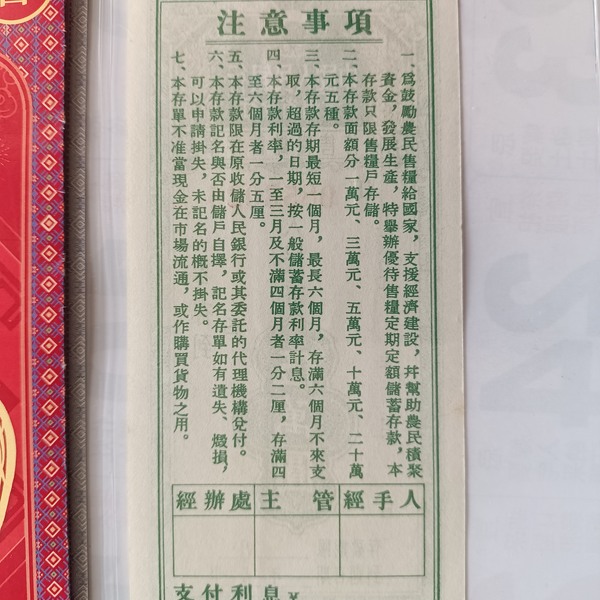 注意事項
一、爲鼓勵農民售糧給國家，支援經濟建設，幷幫助農民積聚
資金，發展生產，特舉辦優待售糧定期定額儲蓄存款，本
存款只限售糧戶存儲。
二、本存款面額分一萬元、三萬元、五萬元、十萬元、二十萬
元五種。
三、本存款存期最短一個月，最長六個月，存滿六個月不來支
取，超過的日期，按一般儲蓄存款利率計息。
四、本存款利率，一至三月及不滿四個月者一分二厘，存滿四
至六個月者一分五厘。
五、本存款限在原收儲人民銀行或其委託的代理機構兌付。
六、本存款記名與否由儲戶自擇，記名存單如有遺失、燬損，
可以申請掛失，未記名的概不掛失。
七、本存單不准當現金在市場流通，或作購買貨物之用。
經辦處 主管 經手人
支付利息¥